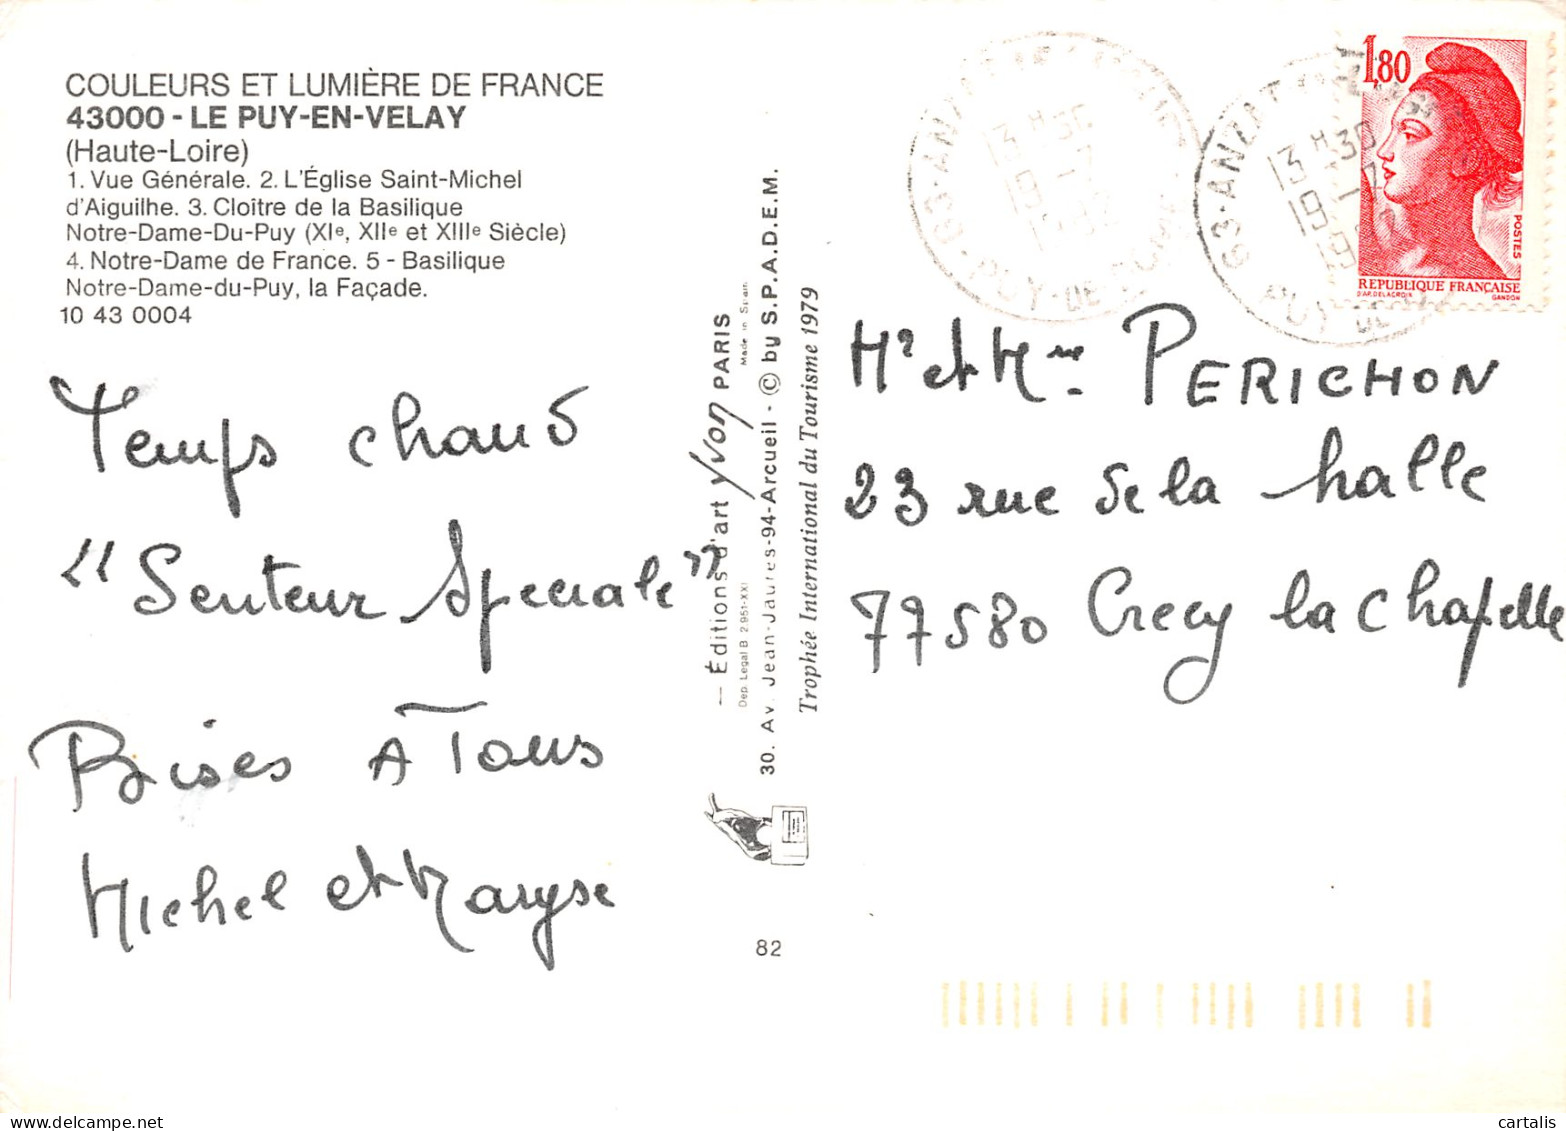 COULEURS ET LUMIÈRE DE FRANCE
43000 - LE PUY-EN-VELAY
(Haute-Loire)
1. Vue Générale. 2. L'Église Saint-Michel
d'Aiguilhe. 3. Cloître de la Basilique
Notre-Dame-Du-Puy (XIe, XIIe et XIIIe Siècle)
4. Notre-Dame de France. 5 - Basilique
Notre-Dame-du-Puy, la Façade.
10 43 0004
Temps chaud
"Senteur Speciale"
Bises A Tous
Michel et Maryse
— Éditions d'art Yvon PARIS
Made in Spain
Dep. Legal B 2.951-XXI
30. Av. Jean-Jaurès-94-Arcueil - © by S.P.A.D.E.M.
Trophée International du Tourisme 1979
82
13 H 30
63 - ANZAT
PUY-DE-DOME
13 H 30
63 - ANZAT
PUY DE
1,80
POSTES
REPUBLIQUE FRANÇAISE
D'AP. DELACROIX
GANDON
Mr et Mme PERICHON
23 rue de la halle
77580 Crecy la chapelle
cartalis